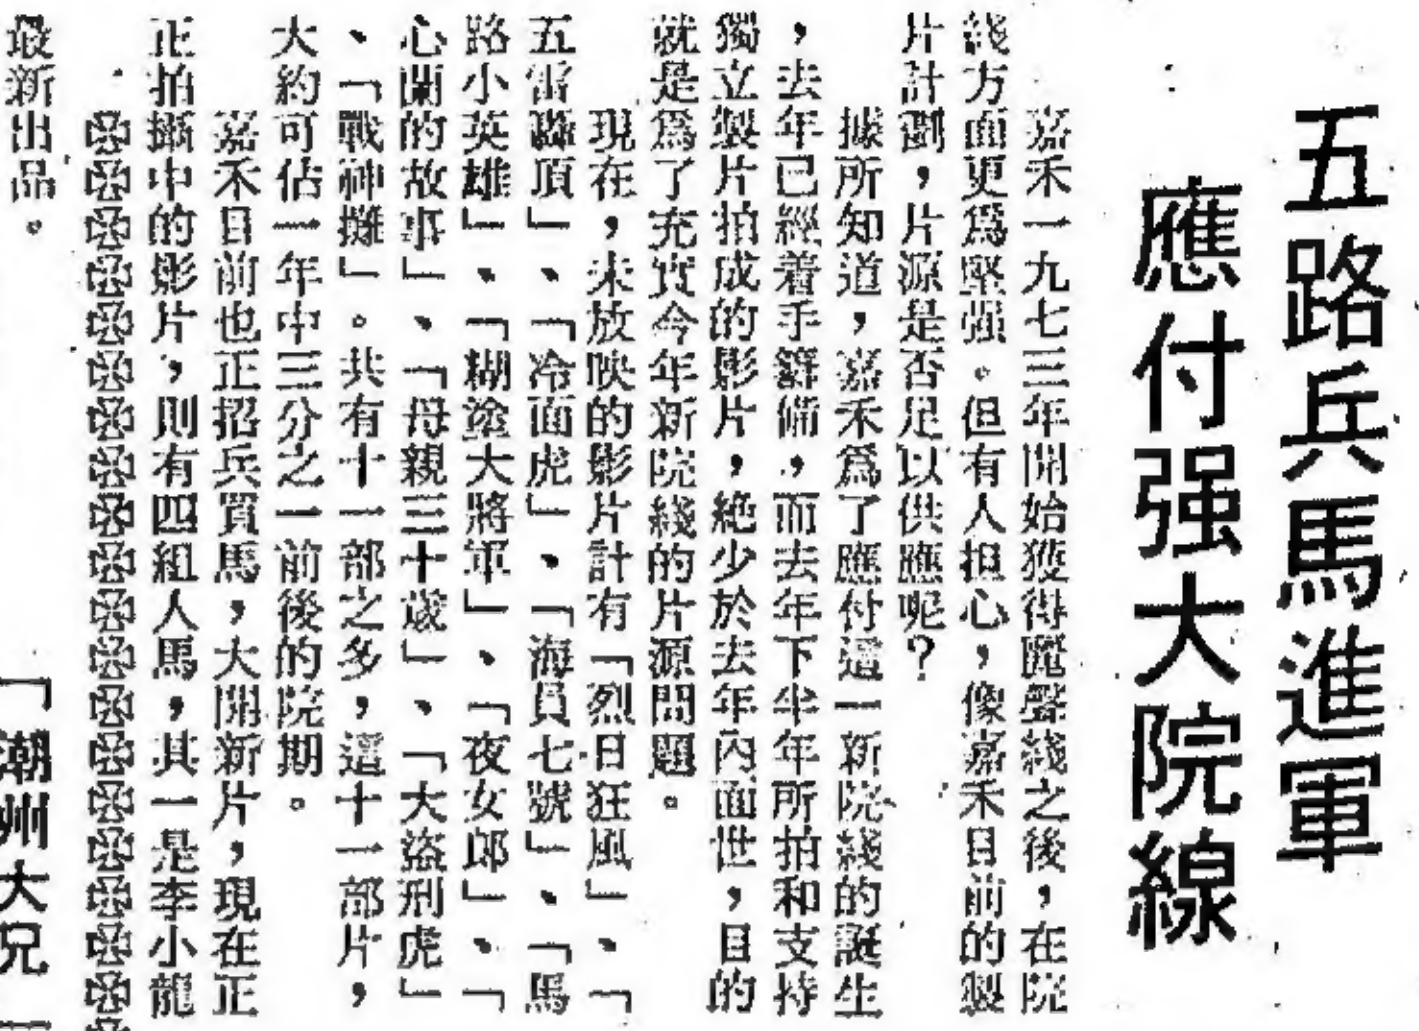 五路兵馬進軍
應付强大院線
嘉禾一九七三年開始獲得麗聲綫之後，在院
綫方面更爲堅强。但有人担心，像嘉禾目前的製
片計劃，片源是否足以供應呢？
據所知道，嘉禾爲了應付這一新院綫的誕生
，去年已經着手籌備，而去年下半年所拍和支持
獨立製片拍成的影片，絶少於去年內面世，目的
就是爲了充實今年新院綫的片源問題。
現在，未放映的影片計有「烈日狂風」、「
五雷轟頂」、「冷面虎」、「海員七號」、「馬
路小英雄」、「糊塗大將軍」、「夜女郎」、「
心蘭的故事」、「母親三十歲」、「大盜刑虎」
、「戰神灘」。共有十一部之多，這十一部片，
大約可佔一年中三分之一前後的院期。
嘉禾目前也正招兵買馬，大開新片，現在正
正拍攝中的影片，則有四組人馬，其一是李小龍
最新出品。
「潮州大兄